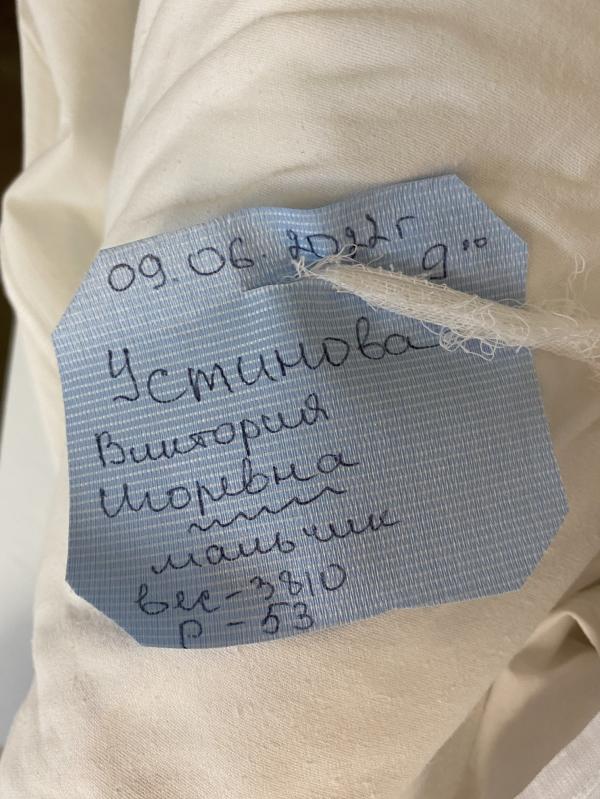 09.06.2022г 9⁰⁰
Устинова
Виктория
Игоревна
мальчик
вес - 3810
р - 53